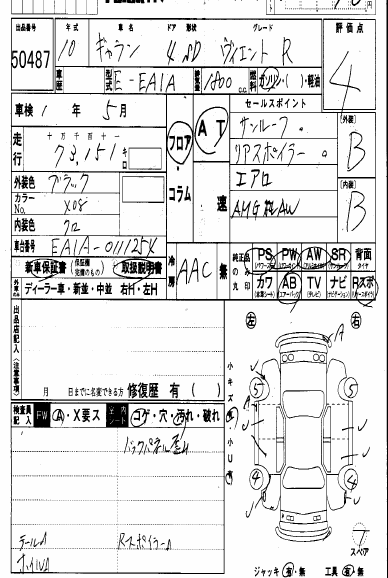 出品番号 年式 車名 ドア 形状 グレード 評価点
50487 10 ギャラン 4 SD ヴィエント R 4
車歴 型式 E-EA1A 排気量 1800 cc 燃料 ガソリン・( )・軽油
車検 1 年 5 月 セールスポイント
サンルーフ 〔外装〕 B
走行 十万千百十一 73,151 キロ フロア・コラム AT 速
リアスポイラー
外装色 ブラック エアロ 〔内装〕 B
カラーNo. X08 AMG AW
内装色 クロ
車台番号 EA1A-01112
冷房 AAC 無 純正品のみ○印 PS PW AW SR 背面タイヤ
新車保証書 取扱説明書 カワ AB TV ナビ Rスポ
ディーラー車・新並・中並 右H・左H
出品店記入《注意事項》 左 右
A
小キズ 小凹
5 5
月 日までに名変できる方 修復歴 有 ( )
検査員記入 FW A・X要ス 内 シート コゲ・穴・汚れ・破れ
バックパネル
4 4
テールA Rスポイラー
ホイルA
7
スペア
ジャッキ 有・無 工具 有・無